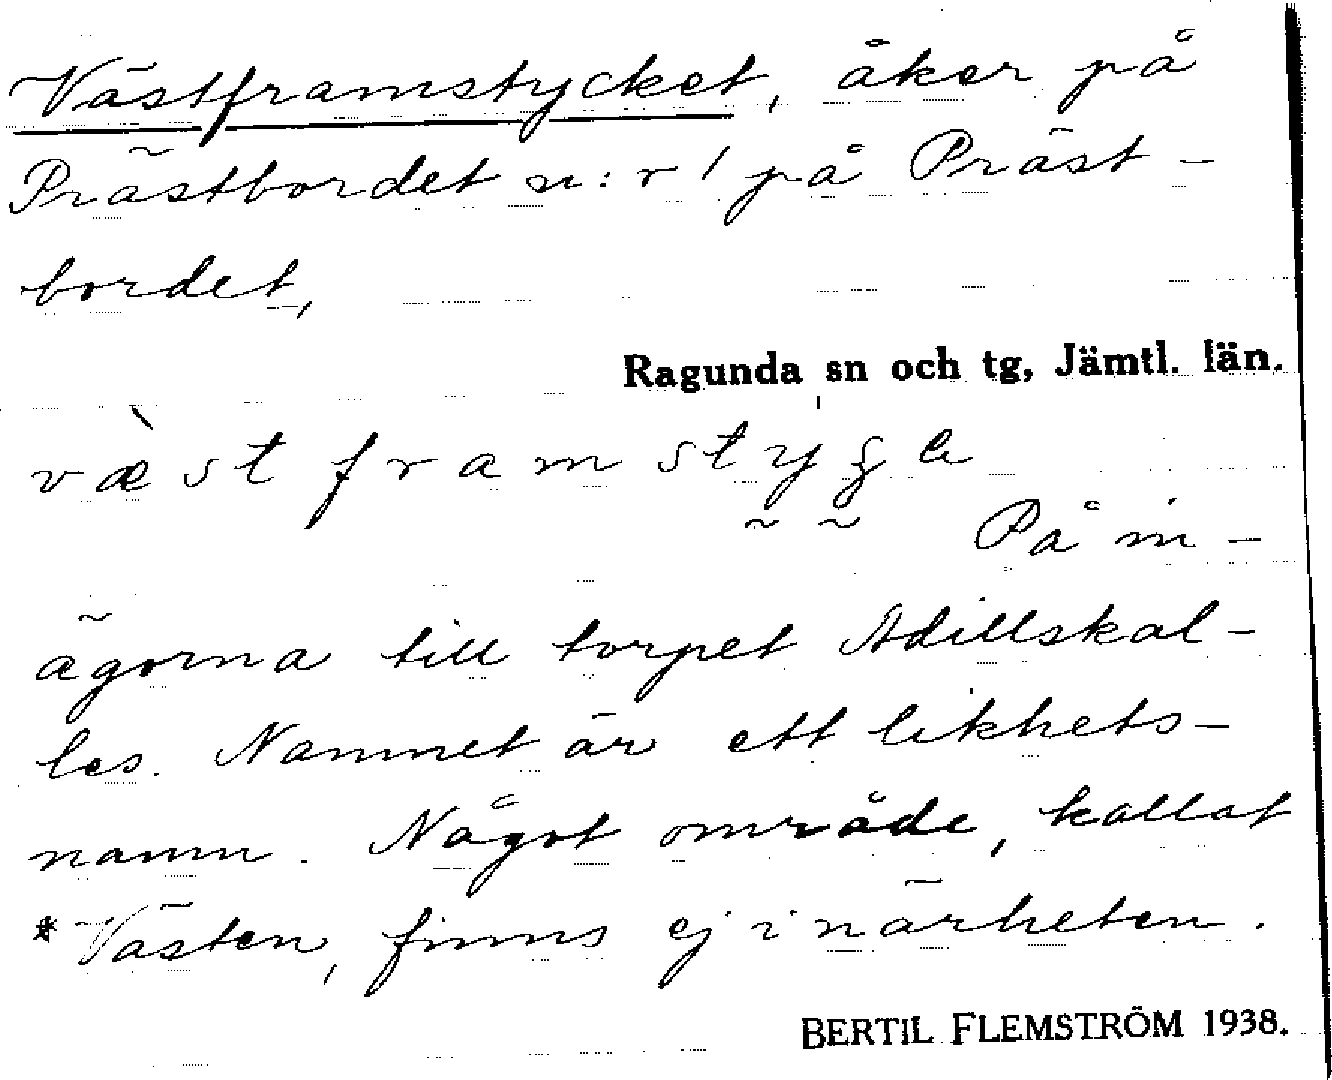 Västframstycket, åker på
Prästbordet n:r 1 på Präst-
bordet,
Ragunda sn och tg, Jämtl. län.
væ̀stframstyɡa
På in-
ägorna till torpet Adillskal-
les. Namnet är ett likhets-
namn. Något område, kallat
*Västen, finns ej i närheten.
BERTIL FLEMSTRÖM 1938.